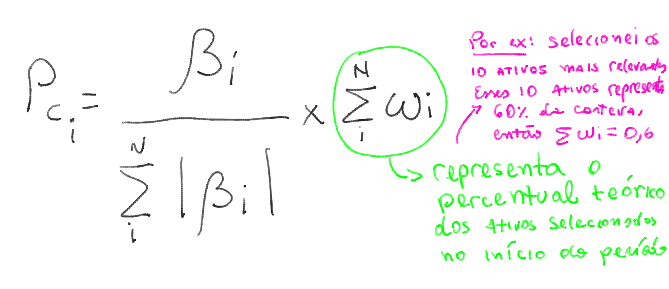 P_{c_i} = \frac{β_i}{\sum_{i}^{N} |β_i|} × \sum_{i}^{N} ω_i
Por ex: selecionei os
10 ativos mais relevantes
Esses 10 ativos representa
60% da carteira,
então Σ ω_i = 0,6
representa o
percentual teórico
dos ativos selecionados
no início do período